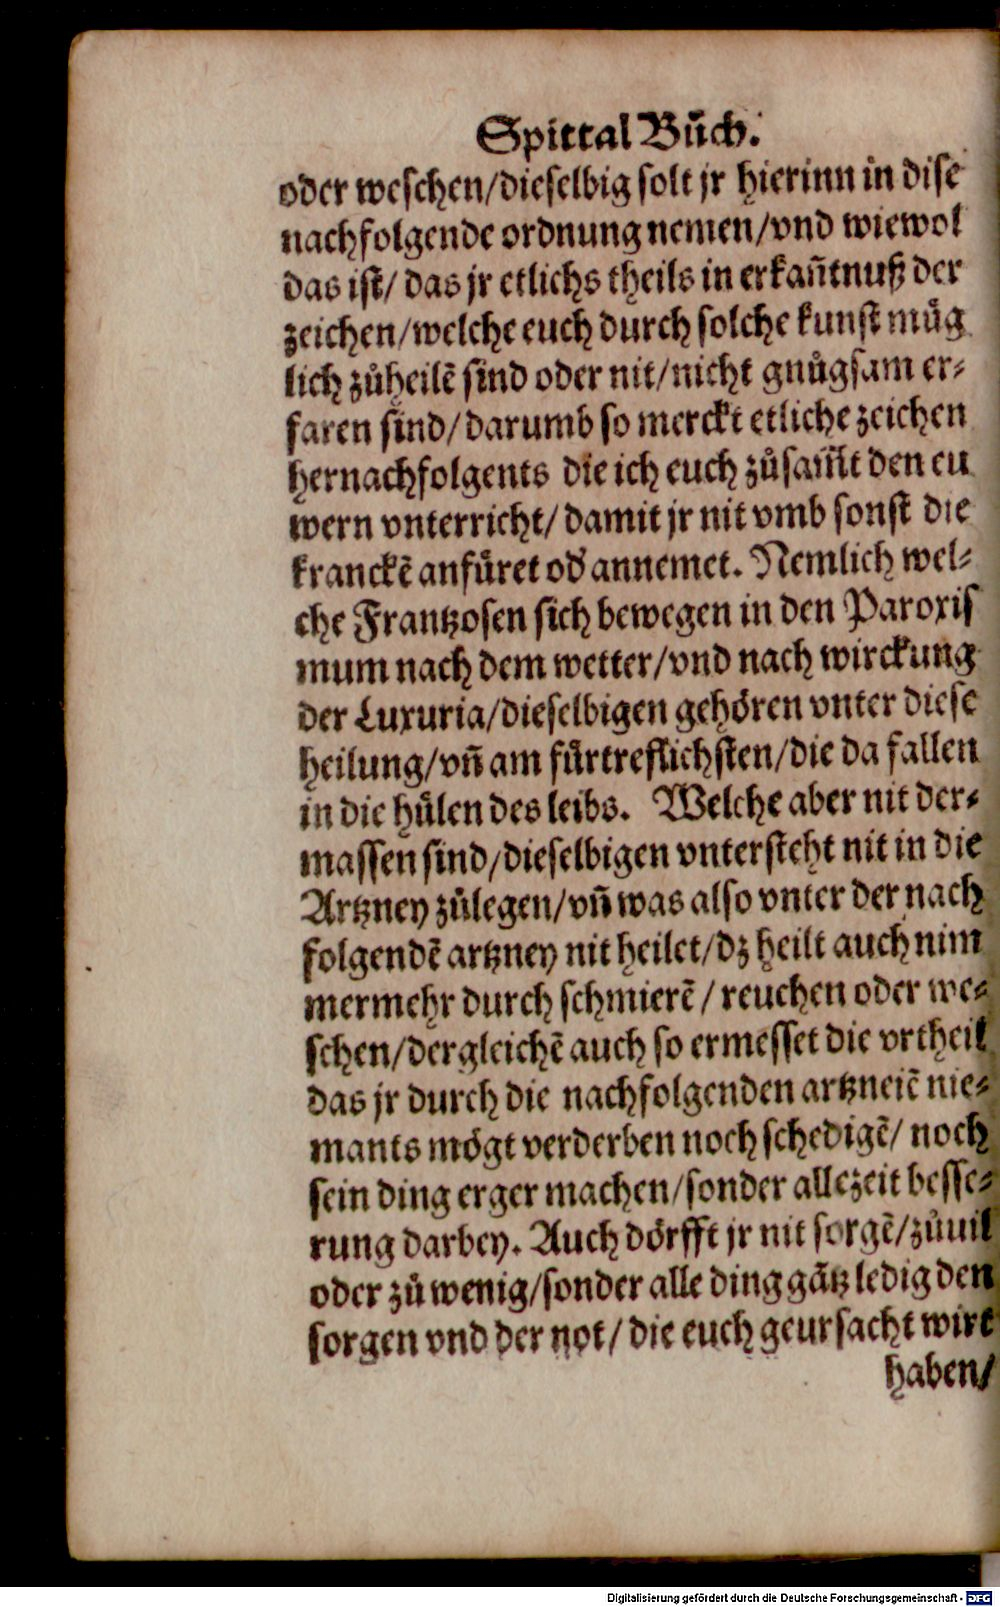 Spittal Bůch.
oder weschen/dieselbig solt jr hierinn in dise
nachfolgende ordnung nemen/vnd wiewol
das ist/ das jr etlichs theils in erkañtnuß der
zeichen/welche euch durch solche kunst müg
lich zůheilẽ sind oder nit/nicht gnůgsam er⸗
faren sind/darumb so merckt etliche zeichen
hernachfolgents die ich euch zůsam̃t den eu
wern vnterricht/ damit jr nit vmb sonst die
kranckẽ anfüret od' annemet. Nemlich wel⸗
che Frantzosen sich bewegen in den Paroxis
mum nach dem wetter/vnd nach wirckung
der Luxuria/dieselbigen gehören vnter diese
heilung/vñ am fürtreflichsten/die da fallen
in die hülen des leibs. Welche aber nit der⸗
massen sind/dieselbigen vntersteht nit in die
Artzney zůlegen/vñ was also vnter der nach
folgendẽ artzney nit heilet/dz heilt auch nim
mermehr durch schmierẽ / reuchen oder we⸗
schen/dergleichẽ auch so ermesset die vrtheil
das jr durch die nachfolgenden artzneiẽ nie⸗
mants mögt verderben noch schedigẽ/ noch
sein ding erger machen/sonder allezeit besse⸗
rung darbey. Auch dörfft jr nit sorgẽ/zůuil
oder zů wenig/sonder alle ding gãtz ledig den
sorgen vnd der not/ die euch geursacht wirt
haben/
Digitalisierung gefördert durch die Deutsche Forschungsgemeinschaft - DFG